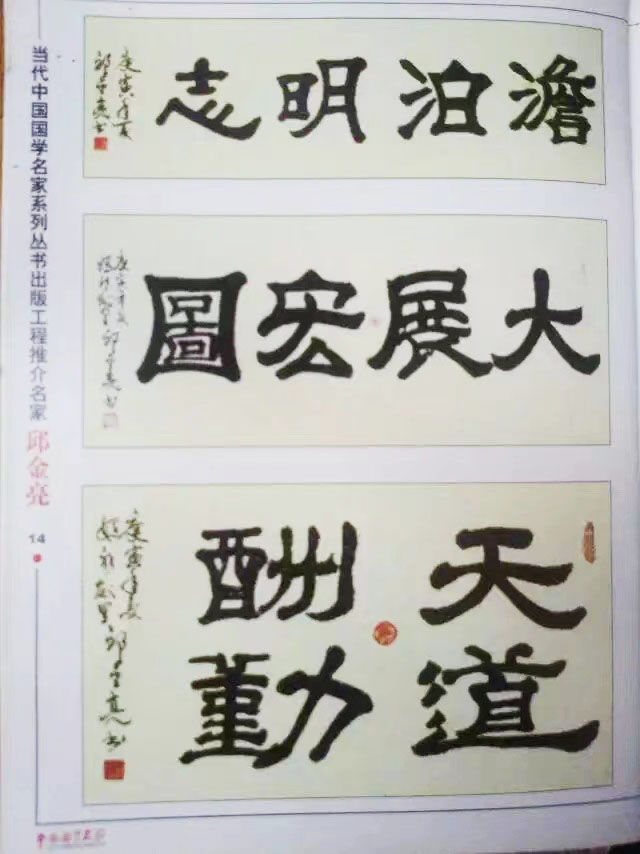 澹泊明志
庚寅年夏
邱金亮书
大展宏圖
邱金亮书
天道
酬勤
庚寅年夏
邱金亮书
当代中国国学名家系列丛书出版工程推介名家 邱金亮
14